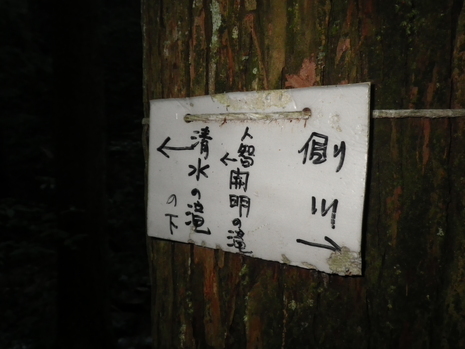 側川→
人智開明の滝←
←清水の滝
の下